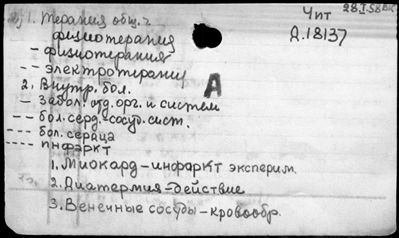 1. Терапия общ. ч
Чит
28.I.58
физиотерапия
Д.18137
– физиотерапия
– – электротерапия
А
2. Внутр. бол.
– Забол. отд. орг. и систем
– – бол. серд.-сосуд. сист.
– – – бол. сердца
– – – – инфаркт
1. Миокард – инфаркт эксперим.
2. Диатермия – действие
3. Венечные сосуды – кровообр.